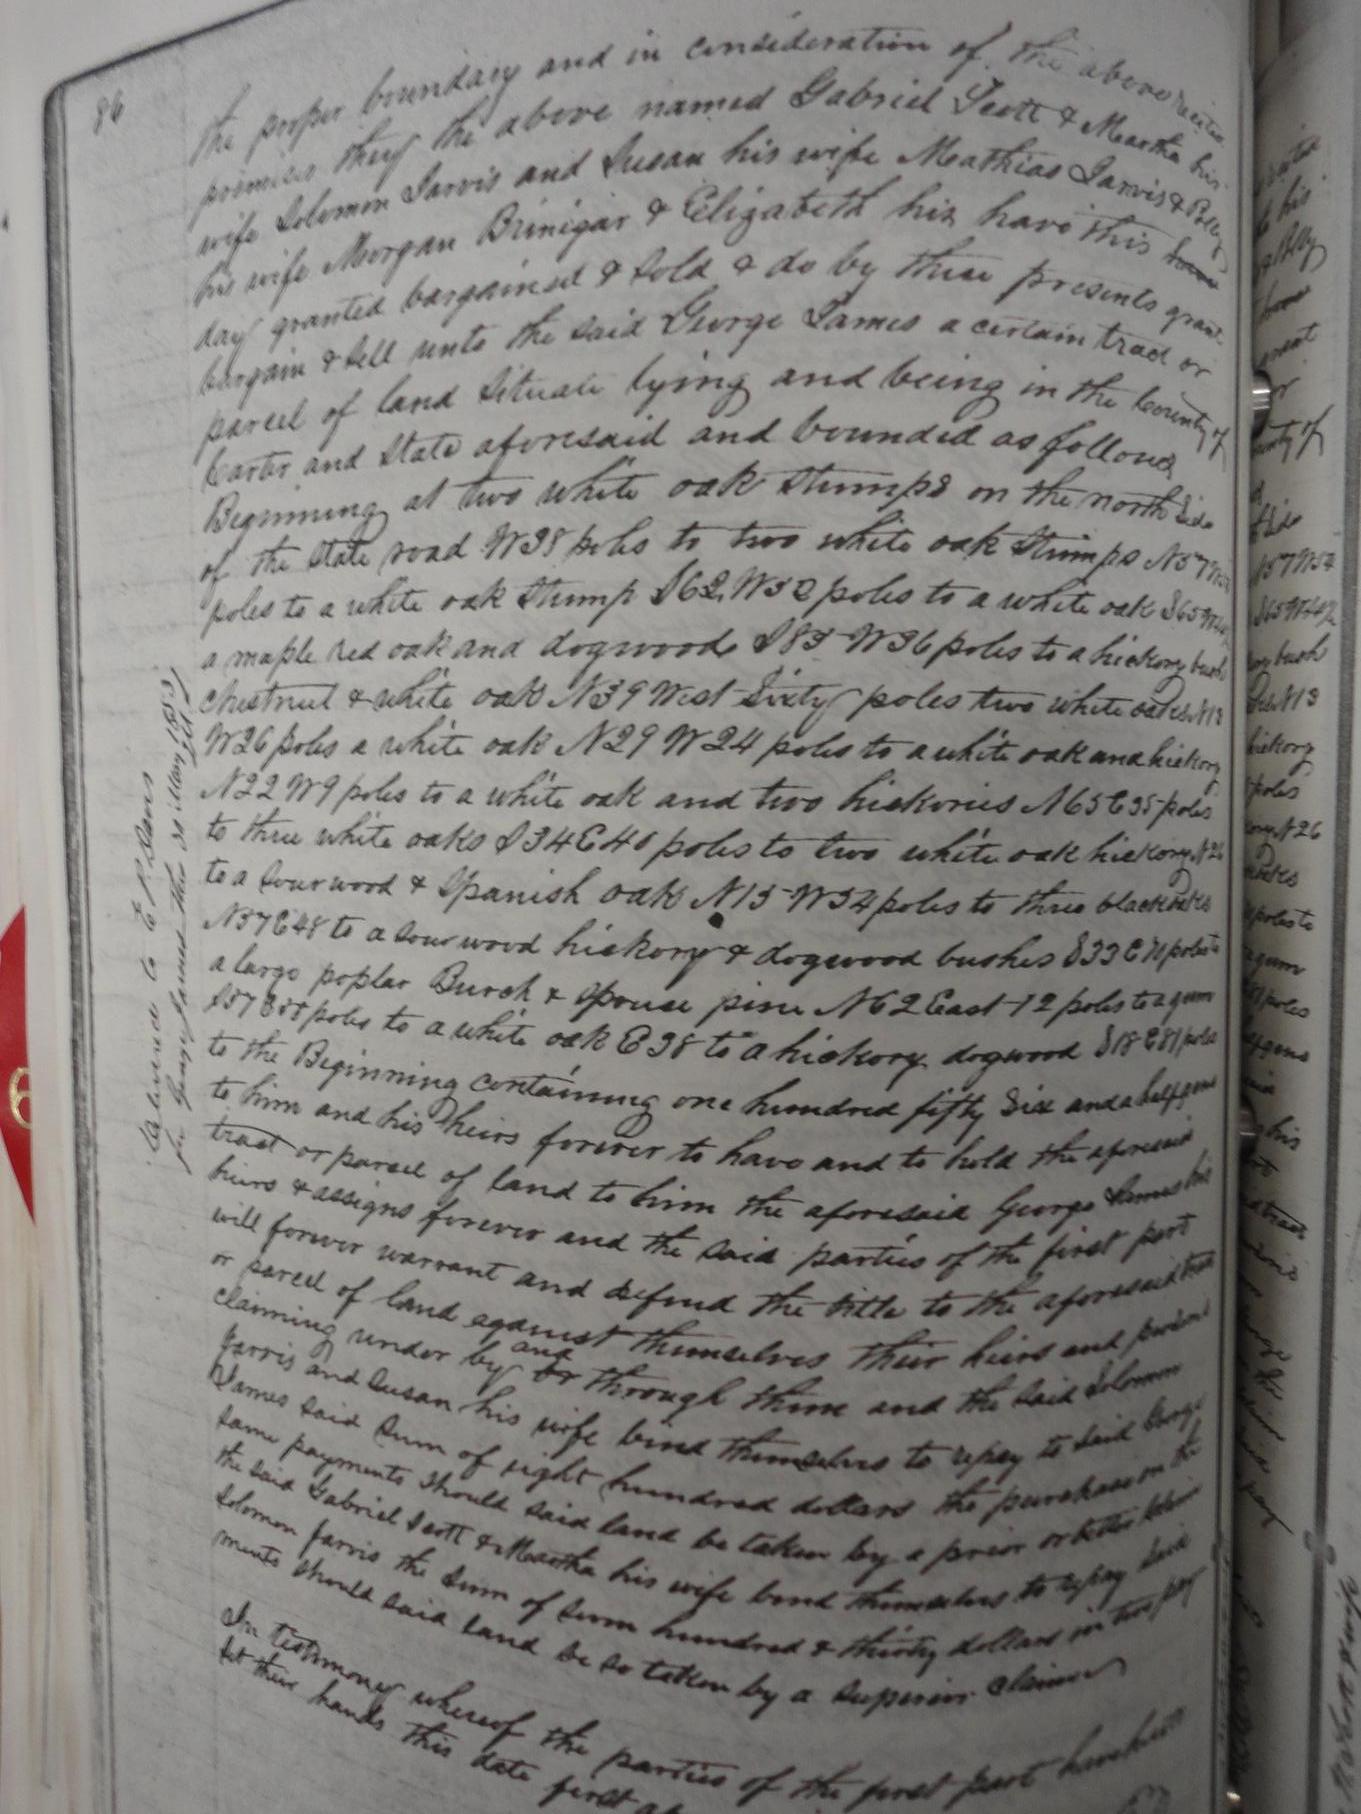 86
the proper boundary and in consideration of the above recited
premises they the above named Gabriel Scott & Martha his
wife Solomon Jarvis and Susan his wife Mathias Jarvis & Polly
his wife Morgan Brinigar & Elizabeth his have this
day granted bargained & sold & do by these presents grant
bargain & sell unto the said George James a certain tract or
parcel of land Situate lying and being in the County of
Carter and State aforesaid and bounded as follows
Beginning at two white oak Stumps on the north Side
of the State road W38 poles to two white oak Stumps N57W
poles to a white oak Stump S62 W32 poles to a white oak S65W
a maple red oak and dogwood S83 W36 poles to a hickory bush
chestnut & white oak N39 West Sixty poles two white oaks N13
W26 poles a white oak N29 W24 poles to a white oak and hickory
N22 W9 poles to a white oak and two hickories N65 E35 poles
to three white oaks S34 E40 poles to two white oak hickory N26
to a Sourwood & Spanish oak N15 W34 poles to three black oaks
N37 E48 to a Sourwood hickory & dogwood bushes S33 E poles to
a large poplar Burch & Spruse pine N62 East 12 poles to a gum
poles to a white oak E38 to a hickory dogwood S18 E81 poles
to the Beginning containing one hundred fifty Six and a half
to him and his heirs forever to have and to hold the aforesaid
tract or parcel of land to him the aforesaid George James his
heirs & assigns forever and the said parties of the first part
will forever warrant and defend the title to the aforesaid tract
or parcel of land against themselves their heirs and persons
claiming under by and or through them and the said Solomon
Jarvis and Susan his wife bind themselves to repay to said George
James said Sum of eight hundred dollars the purchase in the
same payments Should said land be taken by a prior or better claim
the said Gabriel Scott & Martha his wife bind themselves to repay said
Solomon Jarvis the Sum of Seven hundred & thirty dollars in two pay
ments should said land be so taken by a Superior claim
In testimony whereof the parties of the first part have
set their hands this date first
Delivered to E P Davis
for George James this 30 May 1853